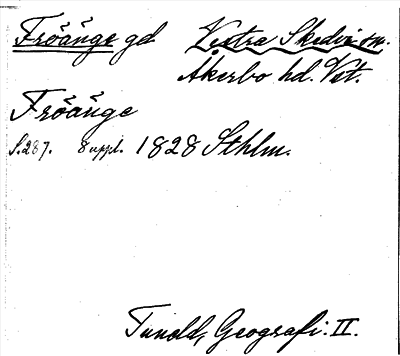 Fröänge gd Vestra Skedvi sn.
Åkerbo hd. Vst.
Fröänge
S.287. 8 uppl. 1828 Sthlm.
Tuneld, Geografi. II.